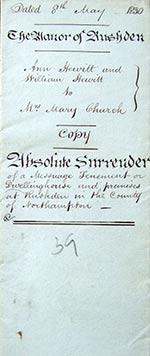 Dated 8th May 1830
The Manor of Rushden
Ann Hewitt and
William Hewitt
to
Mrs Mary Church
Copy
Absolute Surrender
of a Messuage Tenement or
Dwellinghouse and premises
at Rushden in the County
of Northampton —
39